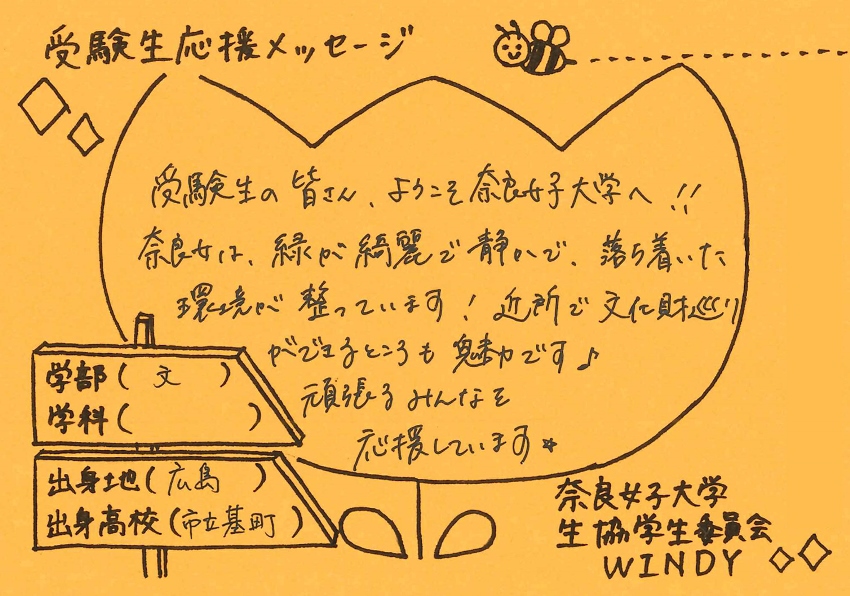 受験生応援メッセージ
受験生の皆さん、ようこそ奈良女子大学へ!!
奈良女は、緑が綺麗で静かで、落ち着いた
環境が整っています!近所で文化財巡り
ができるところも魅力です♪
頑張るみんなを
応援しています☆
学部(文)
学科( )
出身地(広島)
出身高校(市立基町)
奈良女子大学
生協学生委員会
WINDY